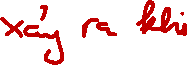 xảy ra khi